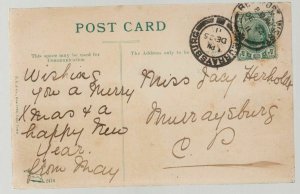 POST CARD
This space may be used for
Communication
The Address only to be
Wishing
you a Merry
Xmas & a
happy New
Year.
from May
Miss Jay Herholdt
Murraysburg
C. P.
1 PM
DE 23